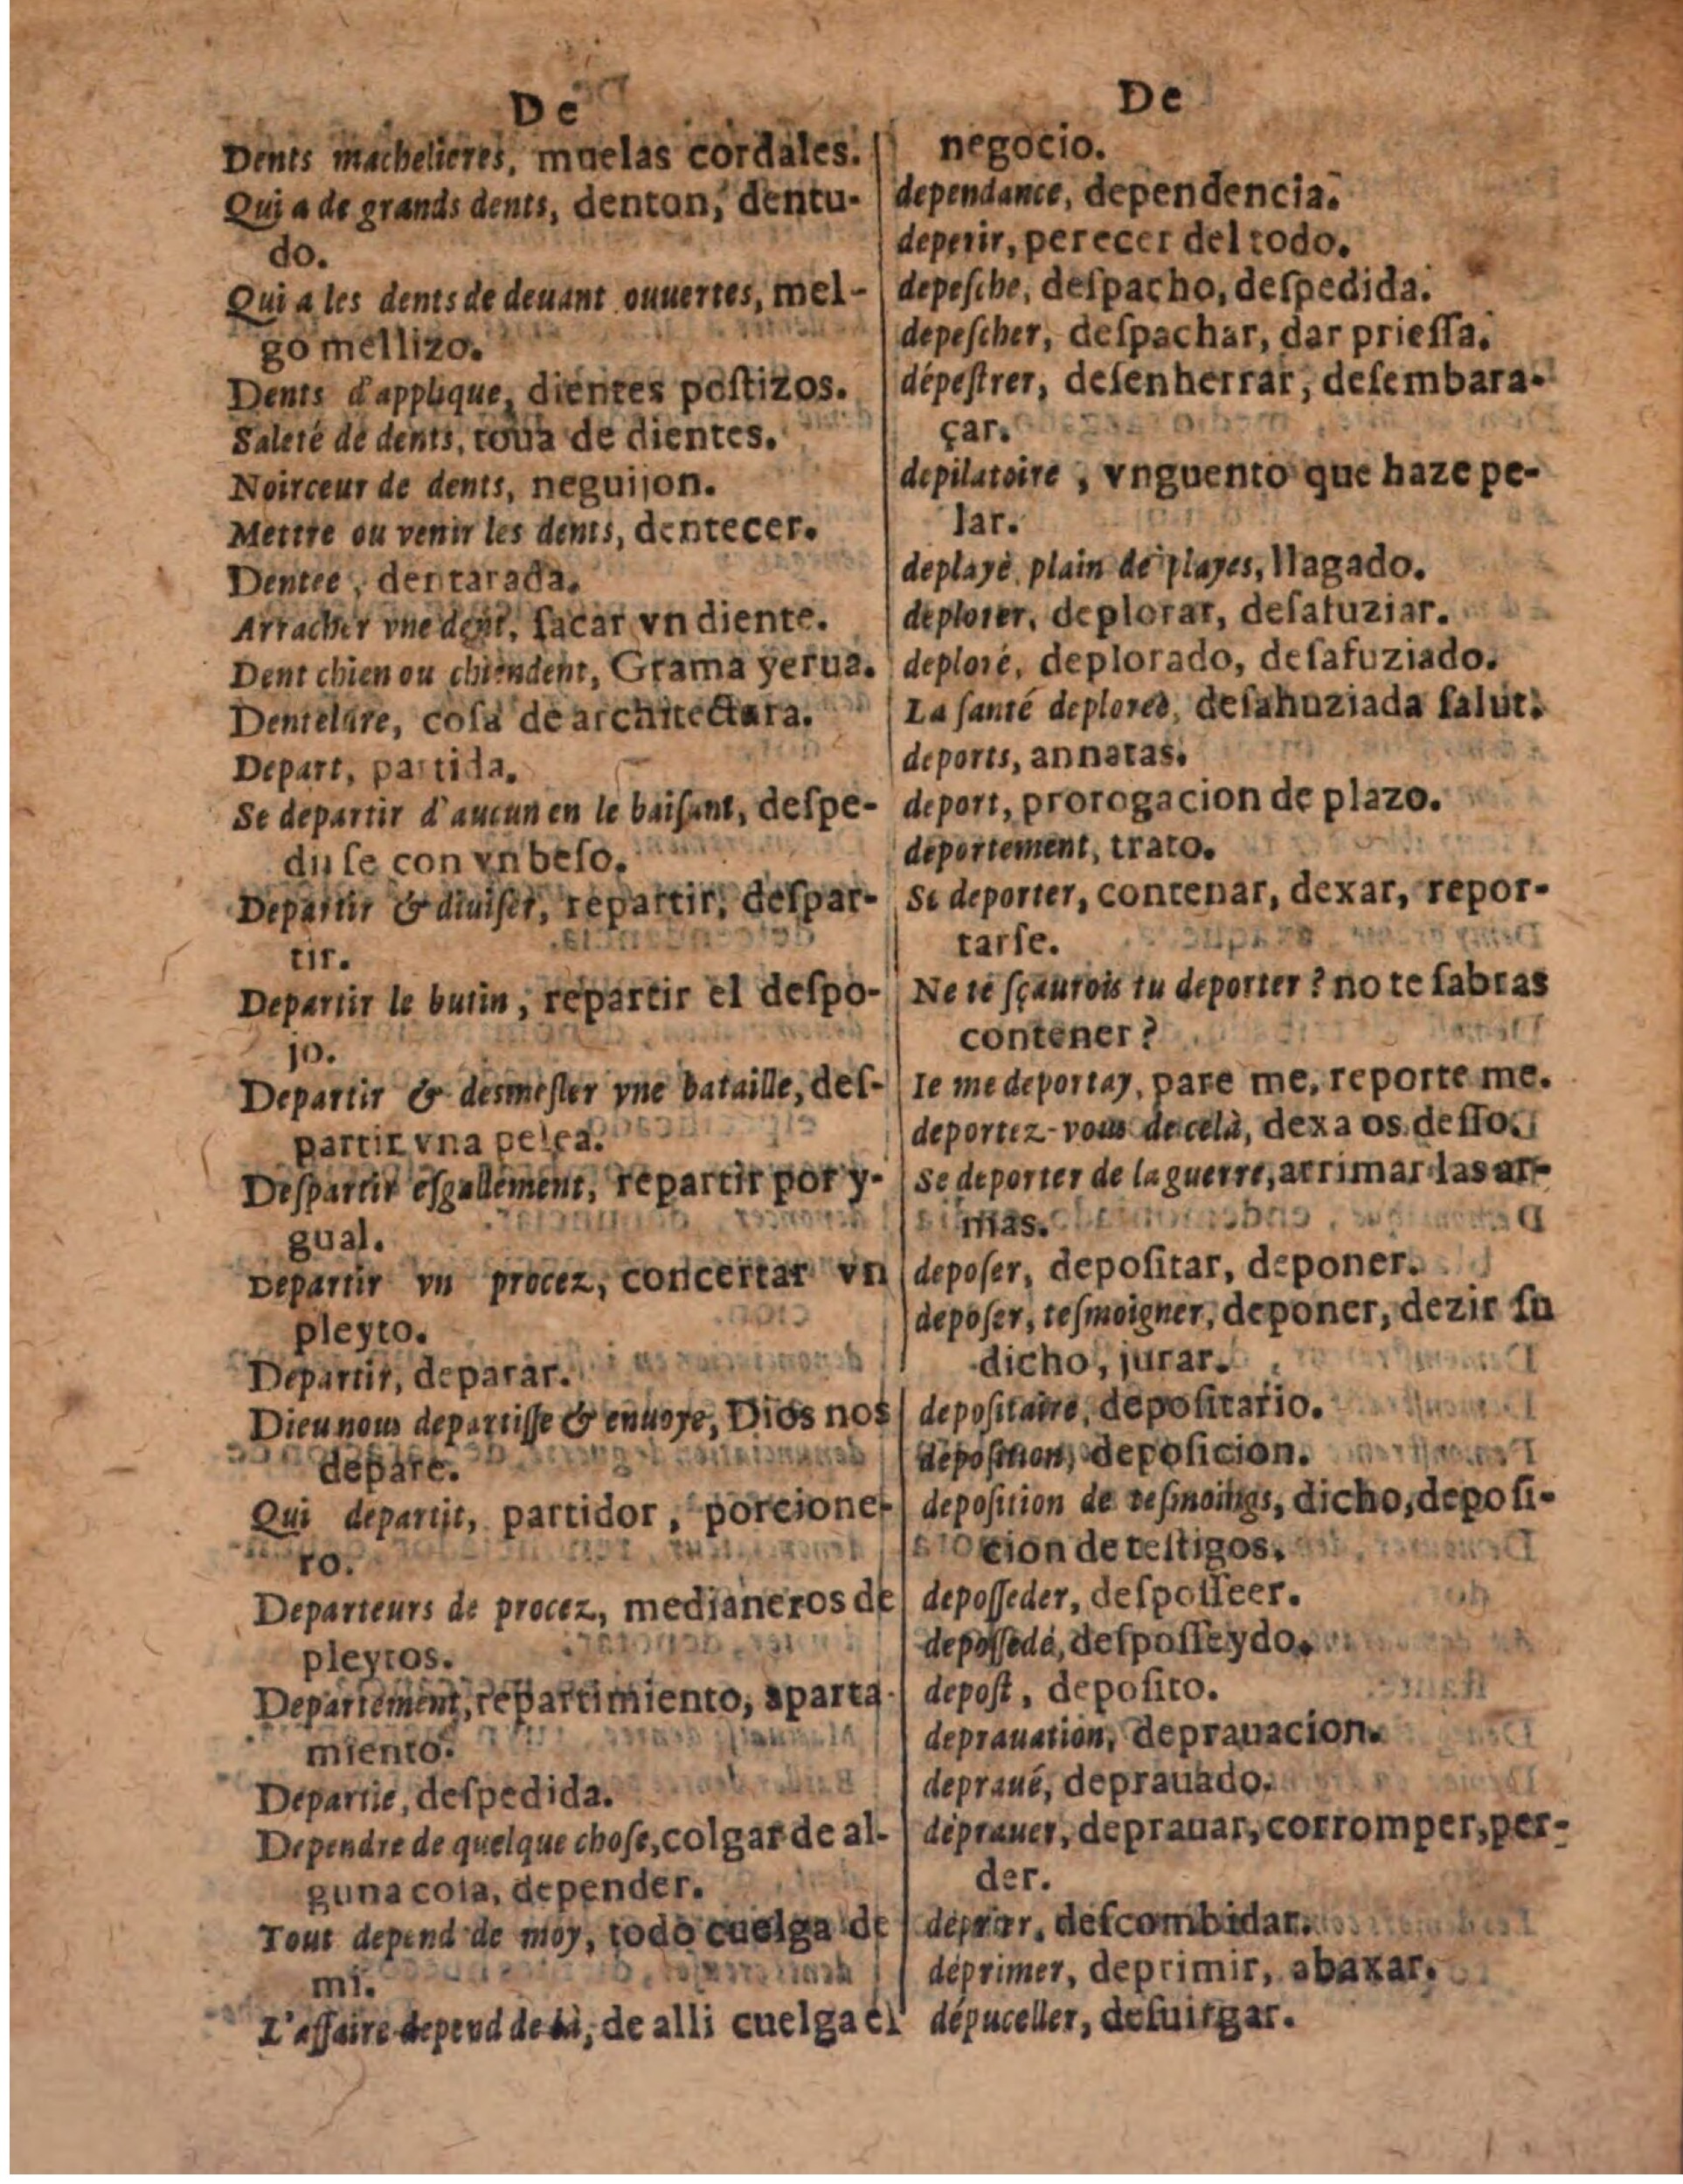 De
Dents machelieres, muelas cordales.
Qui a de grands dents, denton, dentu-
do.
Qui a les dents de deuant ouuertes, mel-
go mellizo.
Dents d'applique, dientes poſtizos.
Saleté de dents, toua de dientes.
Noirceur de dents, neguijon.
Mettre ou venir les dents, dentecer.
Dentee, dentarada.
Arracher vne dent, ſacar vn diente.
Dent chien ou chiendent, Grama yerua.
Dentelure, coſa de architectura.
Depart, partida.
Se departir d'aucun en le baiſant, deſpe-
dir ſe con vn beſo.
Departir & diuiſer, repartir, deſpar-
tir.
Departir le butin, repartir el deſpo-
jo.
Departir & desmeſler vne bataille, deſ-
partir vna pelea.
Deſpartir eſgallement, repartir por y-
gual.
Departir vn procez, concertar vn
pleyto.
Departir, deparar.
Dieu nous departiſſe & enuoye, Dios nos
depare.
Qui departit, partidor, porcione-
ro.
Departeurs de procez, medianeros de
pleytos.
Departement, repartimiento, aparta-
miento.
Departie, deſpedida.
Dependre de quelque choſe, colgar de al-
guna coſa, depender.
Tout depend de moy, todo cuelga de
mi.
L'affaire depend de là, de alli cuelga el
De
negocio.
dependance, dependencia.
deperir, perecer del todo.
depeſche, deſpacho, deſpedida.
depeſcher, deſpachar, dar prieſſa.
dépeſtrer, deſenherrar, deſembara-
çar.
depilatoire, vnguento que haze pe-
lar.
deplayè plain de playes, llagado.
deplorer, deplorar, deſafuziar.
deploré, deplorado, deſafuziado.
La ſanté deploree, deſahuziada ſalut.
deports, annatas.
deport, prorogacion de plazo.
deportement, trato.
Se deporter, contenar, dexar, repor-
tarſe.
Ne te ſçaurois tu deporter? no te ſabras
contener?
Ie me deportay, pare me, reporte me.
deportez-vous de celà, dexa os deſſo.
Se deporter de la guerre, arrimar las ar-
mas.
depoſer, depoſitar, deponer.
depoſer, teſmoigner, deponer, dezir ſu
dicho, jurar.
depoſitaire, depoſitario.
depoſition, depoſicion.
depoſition de teſmoings, dicho, depoſi-
cion de teſtigos.
depoſſeder, deſpoſſeer.
depoſſedé, deſpoſſeydo.
depoſt, depoſito.
deprauation, deprauacion.
depraué, deprauado.
deprauer, deprauar, corromper, per-
der.
deprier, deſcombidar.
déprimer, deprimir, abaxar.
dépuceller, deſuirgar.